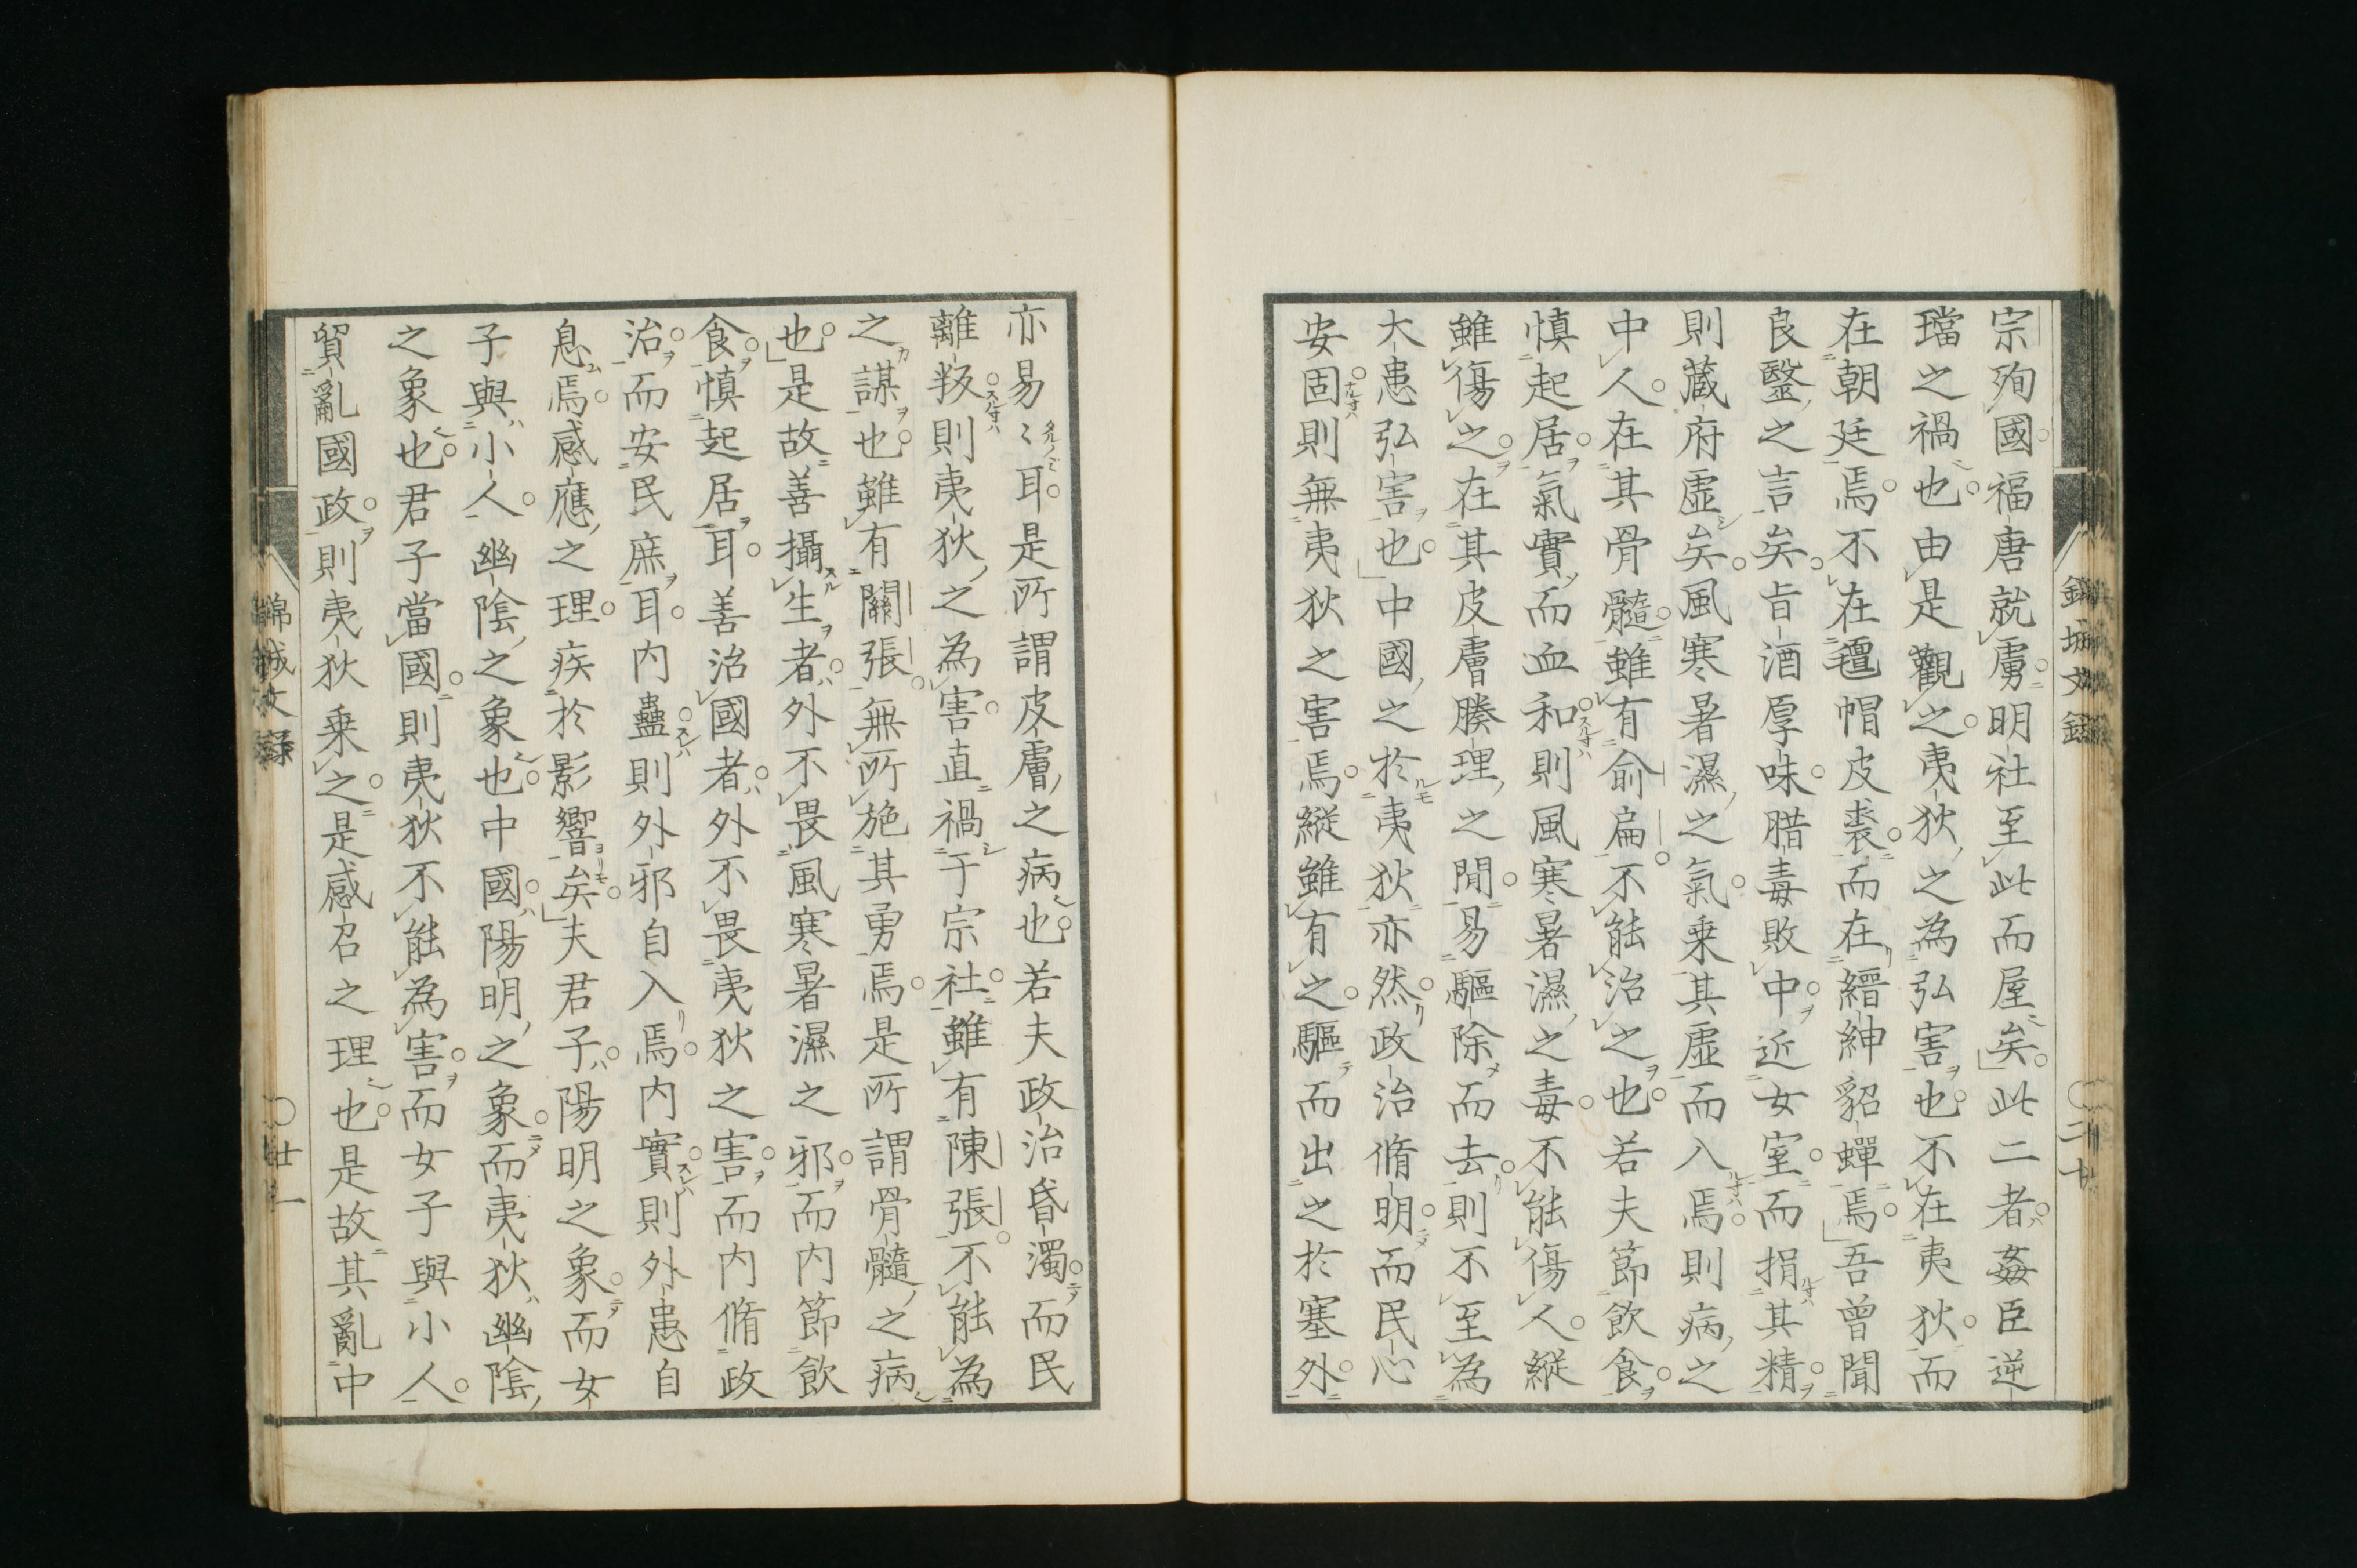 宗殉國福唐就虜明社至此而屋矣此二者姦臣逆
璫之禍也由是觀之夷狄之為弘害也不在夷狄而
在朝廷焉不在氊帽皮裘而在縉紳貂蟬焉吾曾聞
良毉之言矣旨酒厚味腊毒敗中近女室而捐其精
則蔵府虛矣風寒暑濕之氣乗其虛而入焉則病之
中人在其骨髓雖有俞扁不能治之也若夫節飲食
慎起居氣實而血和則風寒暑濕之毒不能傷人縦
雖傷之在其皮膚腠理之間易驅除而去則不至為
大患弘害也中國之於夷狄亦然政治脩明而民心
安固則無夷狄之害焉縦雖有之驅而出之於塞外
錦城文録
〇二十
亦易〻耳是所謂皮膚之病也若夫政治昏濁而民
離叛則夷狄之為害直禍于宗社雖有陳張不能為
之謀也雖有關張無所施其勇焉是所謂骨髓之病
也是故善攝生者外不畏風寒暑濕之邪而内節飲
食慎起居耳善治國者外不畏夷狄之害而内脩政
治而安民庶耳内蠱則外邪自入焉内實則外患自
息焉感應之理疾於影響矣夫君子陽明之象而女
子與小人幽陰之象也中國陽明之象而夷狄幽陰
之象也君子當國則夷狄不能為害而女子與小人
貿亂國政則夷狄乗之是感召之理也是故其亂中
錦城文録
〇廿一